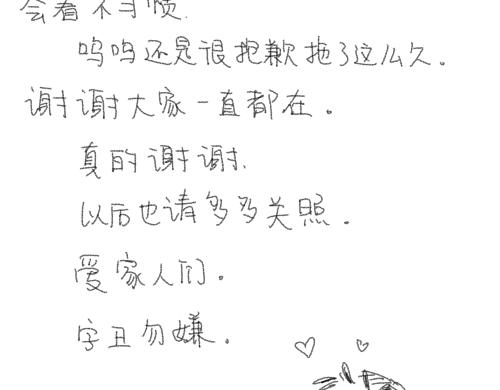 会看不习惯.
呜呜还是很抱歉拖了这么久.
谢谢大家一直都在.
真的谢谢.
以后也请多多关照.
爱家人们.
字丑勿嫌.